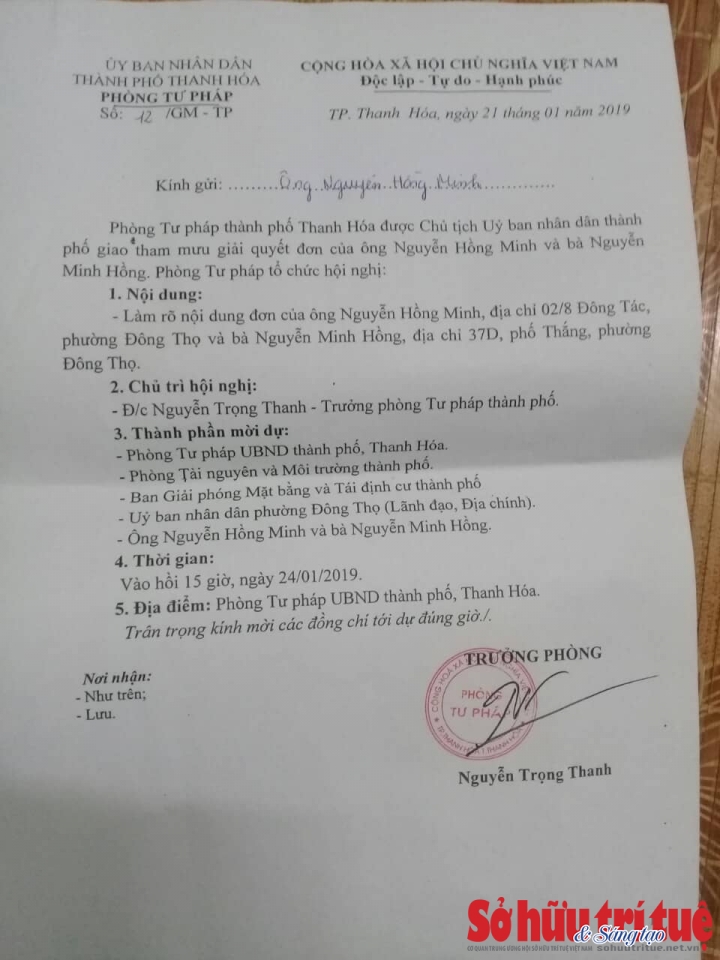 ỦY BAN NHÂN DÂN
THÀNH PHỐ THANH HÓA
PHÒNG TƯ PHÁP
Số: 12 /GM - TP
CỘNG HÒA XÃ HỘI CHỦ NGHĨA VIỆT NAM
Độc lập - Tự do - Hạnh phúc
TP. Thanh Hóa, ngày 21 tháng 01 năm 2019
Kính gửi: .........Ông..Nguyễn..Hồng..Minh.............
Phòng Tư pháp thành phố Thanh Hóa được Chủ tịch Uỷ ban nhân dân thành
phố giao tham mưu giải quyết đơn của ông Nguyễn Hồng Minh và bà Nguyễn
Minh Hồng. Phòng Tư pháp tổ chức hội nghị:
1. Nội dung:
- Làm rõ nội dung đơn của ông Nguyễn Hồng Minh, địa chỉ 02/8 Đông Tác,
phường Đông Thọ và bà Nguyễn Minh Hồng, địa chỉ 37D, phố Thắng, phường
Đông Thọ.
2. Chủ trì hội nghị:
- Đ/c Nguyễn Trọng Thanh - Trưởng phòng Tư pháp thành phố.
3. Thành phần mời dự:
- Phòng Tư pháp UBND thành phố, Thanh Hóa.
- Phòng Tài nguyên và Môi trường thành phố.
- Ban Giải phóng Mặt bằng và Tái định cư thành phố
- Uỷ ban nhân dân phường Đông Thọ (Lãnh đạo, Địa chính).
- Ông Nguyễn Hồng Minh và bà Nguyễn Minh Hồng.
4. Thời gian:
Vào hồi 15 giờ, ngày 24/01/2019.
5. Địa điểm: Phòng Tư pháp UBND thành phố, Thanh Hóa.
Trân trọng kính mời các đồng chí tới dự đúng giờ./.
Nơi nhận:
- Như trên;
- Lưu.
TRƯỞNG PHÒNG
PHÒNG
TƯ PHÁP
Nguyễn Trọng Thanh
Sở hữu trí tuệ
& Sáng tạo
CƠ QUAN TRUNG ƯƠNG HỘI SỞ HỮU TRÍ TUỆ VIỆT NAM
sohuutritue.net.vn